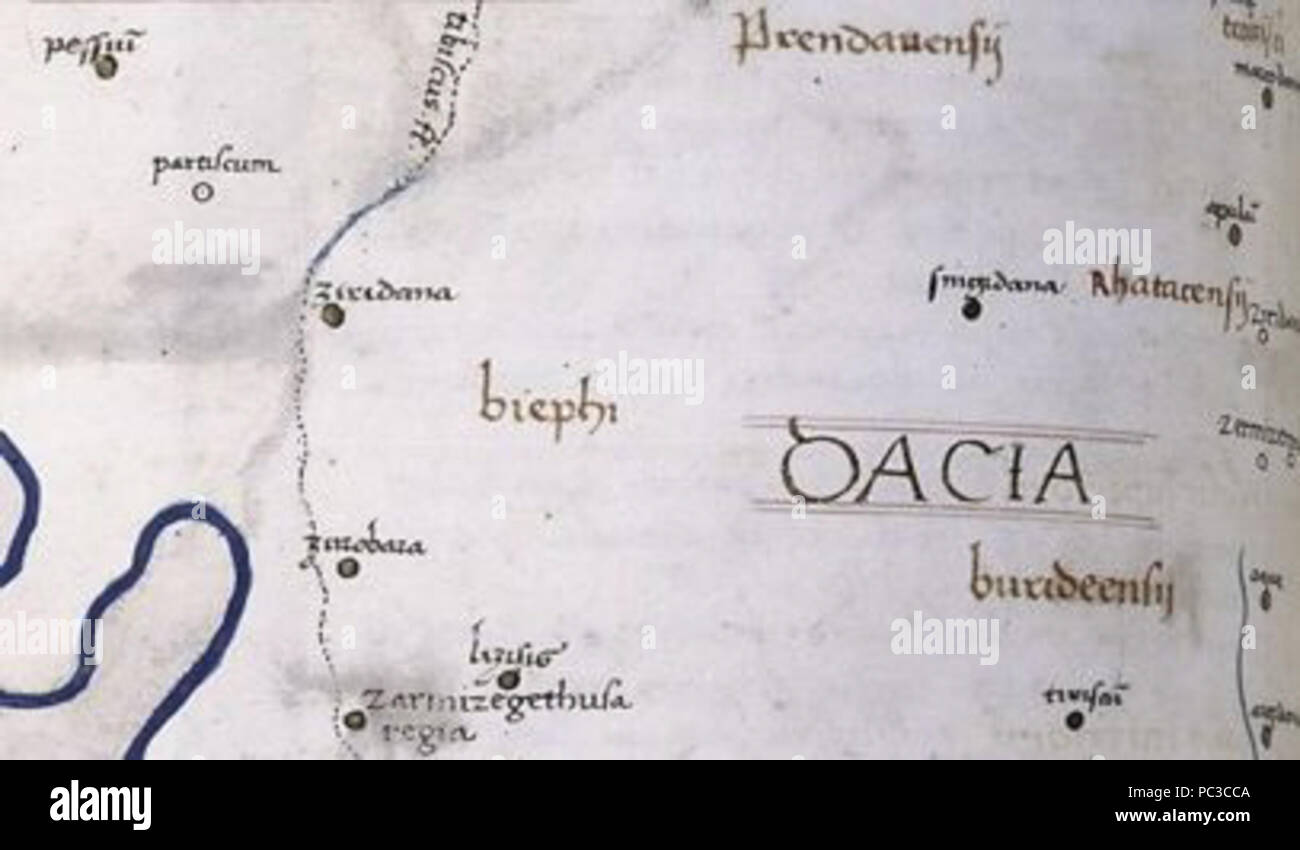 pessiū
tibiscus fl.
Prendauensij
partiscum
apulū
ziridana
singidana
Rhatacensij
biephi
DACIA
zurobara
burideensij
aque
lizisis
Zarmizegethusa
regia
tiriscū
alamy
alamy
Image ID: PC3CCA
www.alamy.com